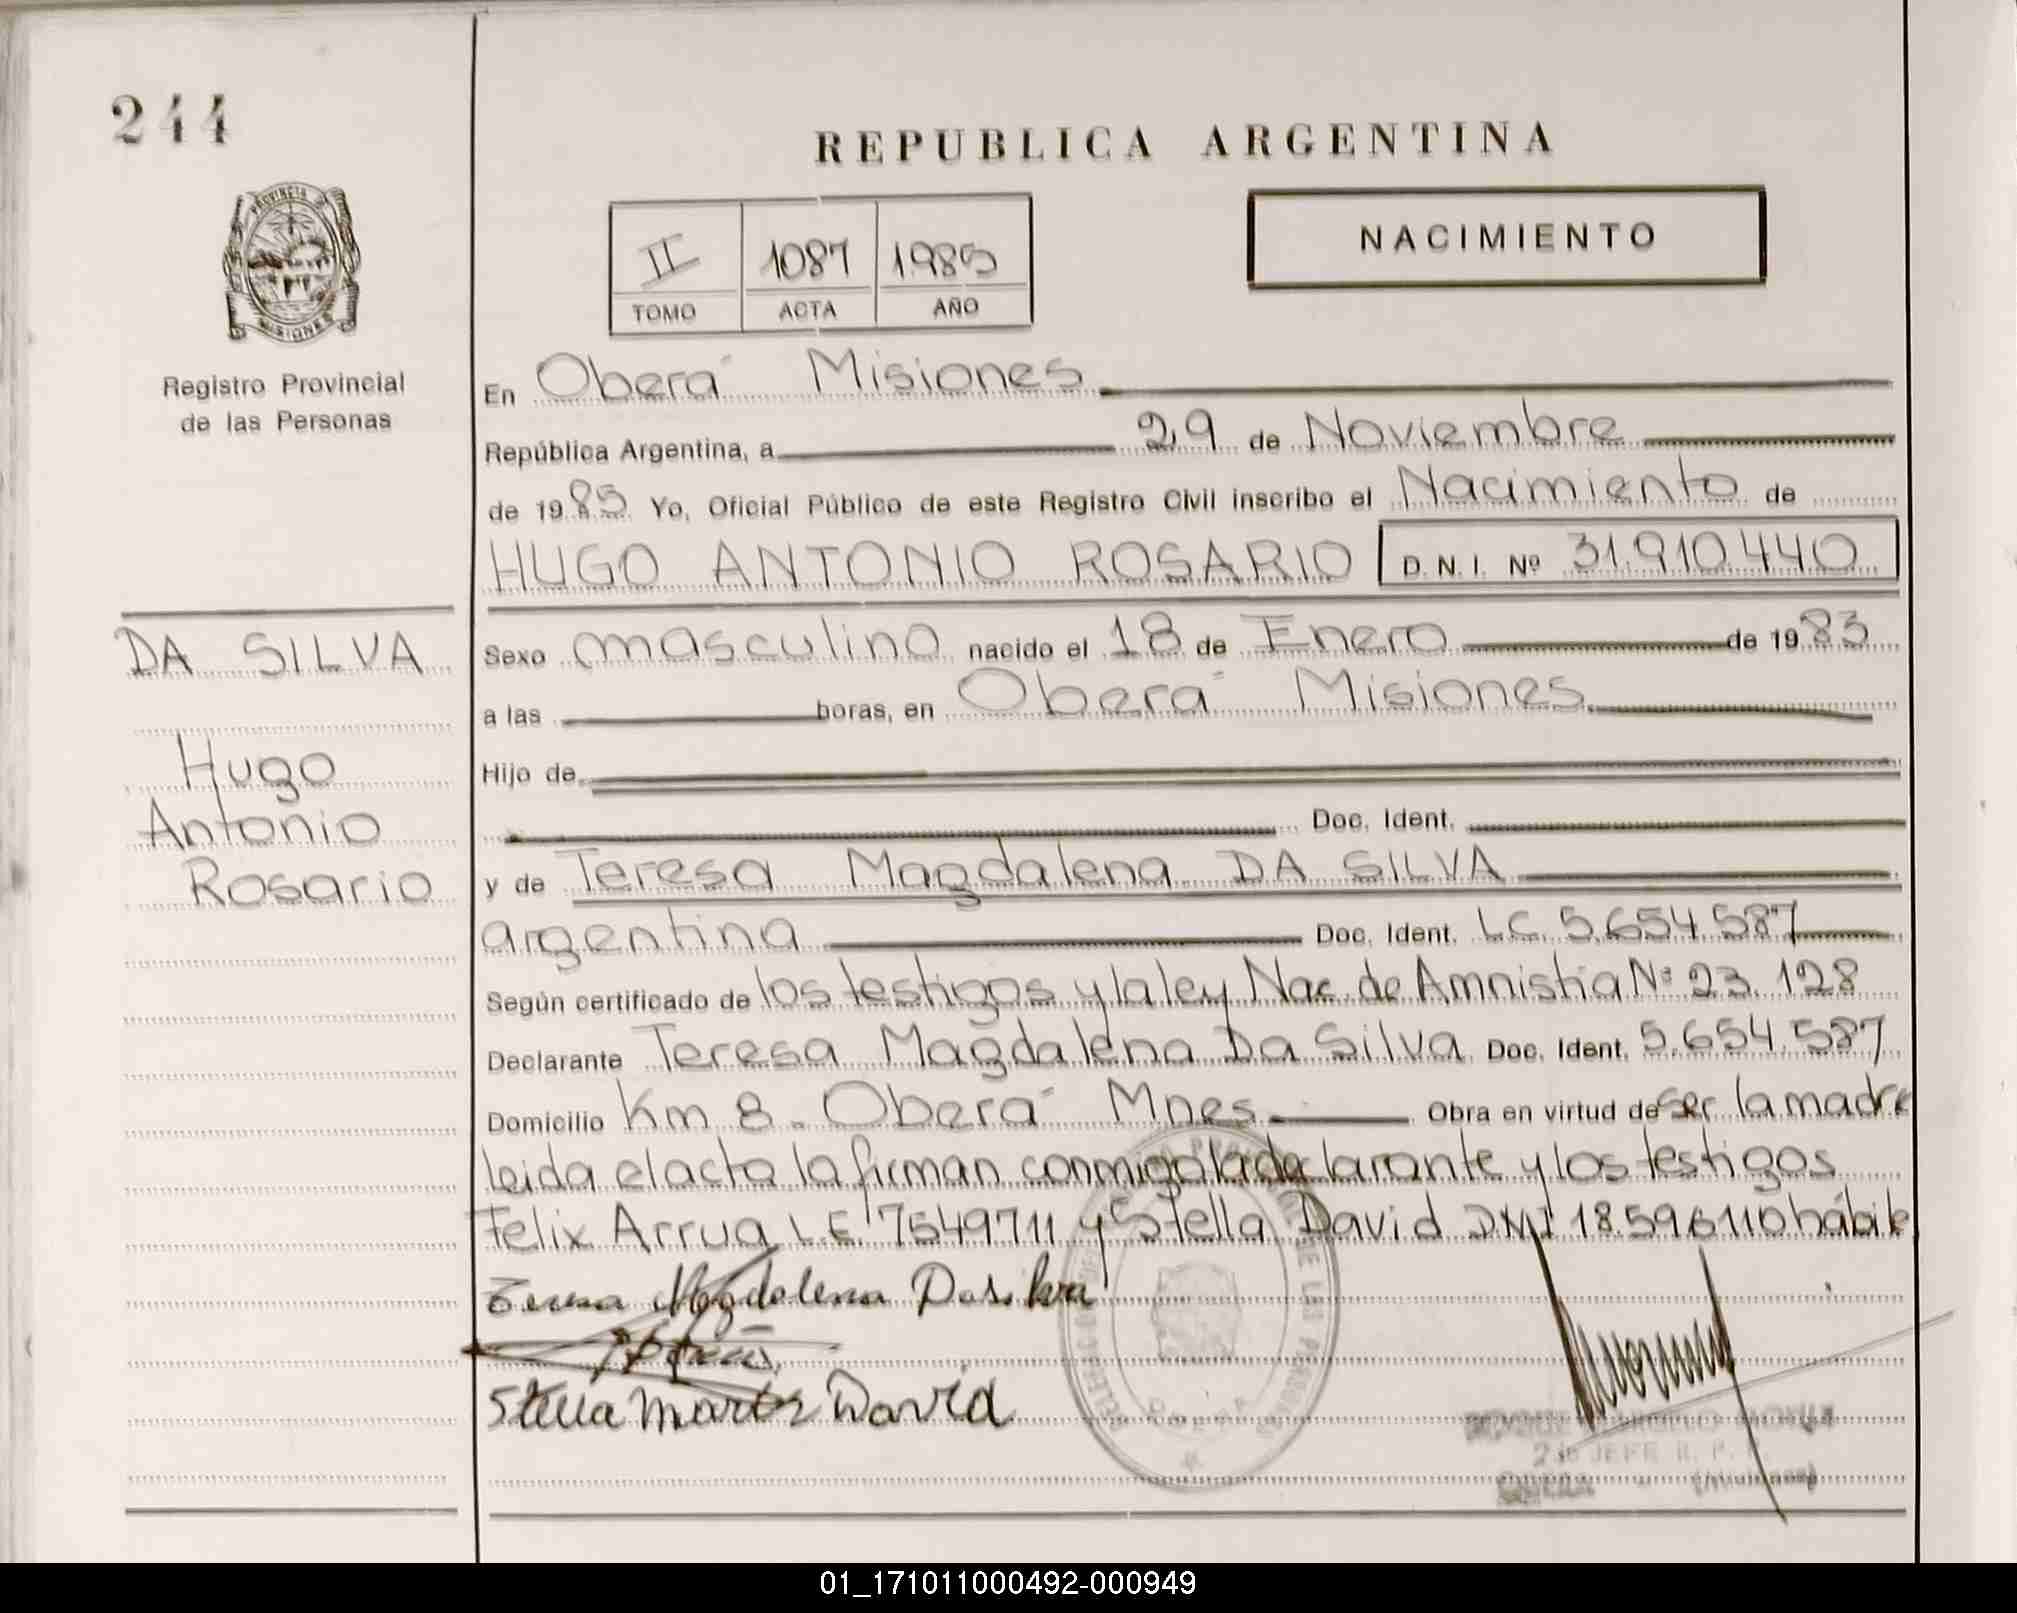 244
REPUBLICA ARGENTINA
PROVINCIA DE
MISIONES
NACIMIENTO
II 1087 1985
TOMO ACTA AÑO
Registro Provincial
de las Personas
En Oberá Misiones
República Argentina, a 29 de Noviembre
de 1985 Yo, Oficial Público de este Registro Civil inscribo el Nacimiento de
HUGO ANTONIO ROSARIO D.N.I. Nº 31.910.440
DA SILVA
Hugo
Antonio
Rosario
Sexo masculino nacido el 18 de Enero de 1983
a las horas, en Oberá Misiones
Hijo de
Doc. Ident.
y de Teresa Magdalena DA SILVA
argentina Doc. Ident. LC. 5.654.587
Según certificado de los testigos y la ley Nac de Amnistía Nº 23.128
Declarante Teresa Magdalena Da Silva Doc. Ident. 5.654.587
Domicilio Km 8 - Oberá Mnes Obra en virtud de ser la madre
leida el acta la firman conmigo la declarante y los testigos
Felix Arrua L.E. 7549711 y Stella David DNI 18.596110 hábile
Teresa Magdalena Dasilva
Stella Maris David
2do JEFE R. P. P.
OBERA - (Misiones)
01_171011000492-000949